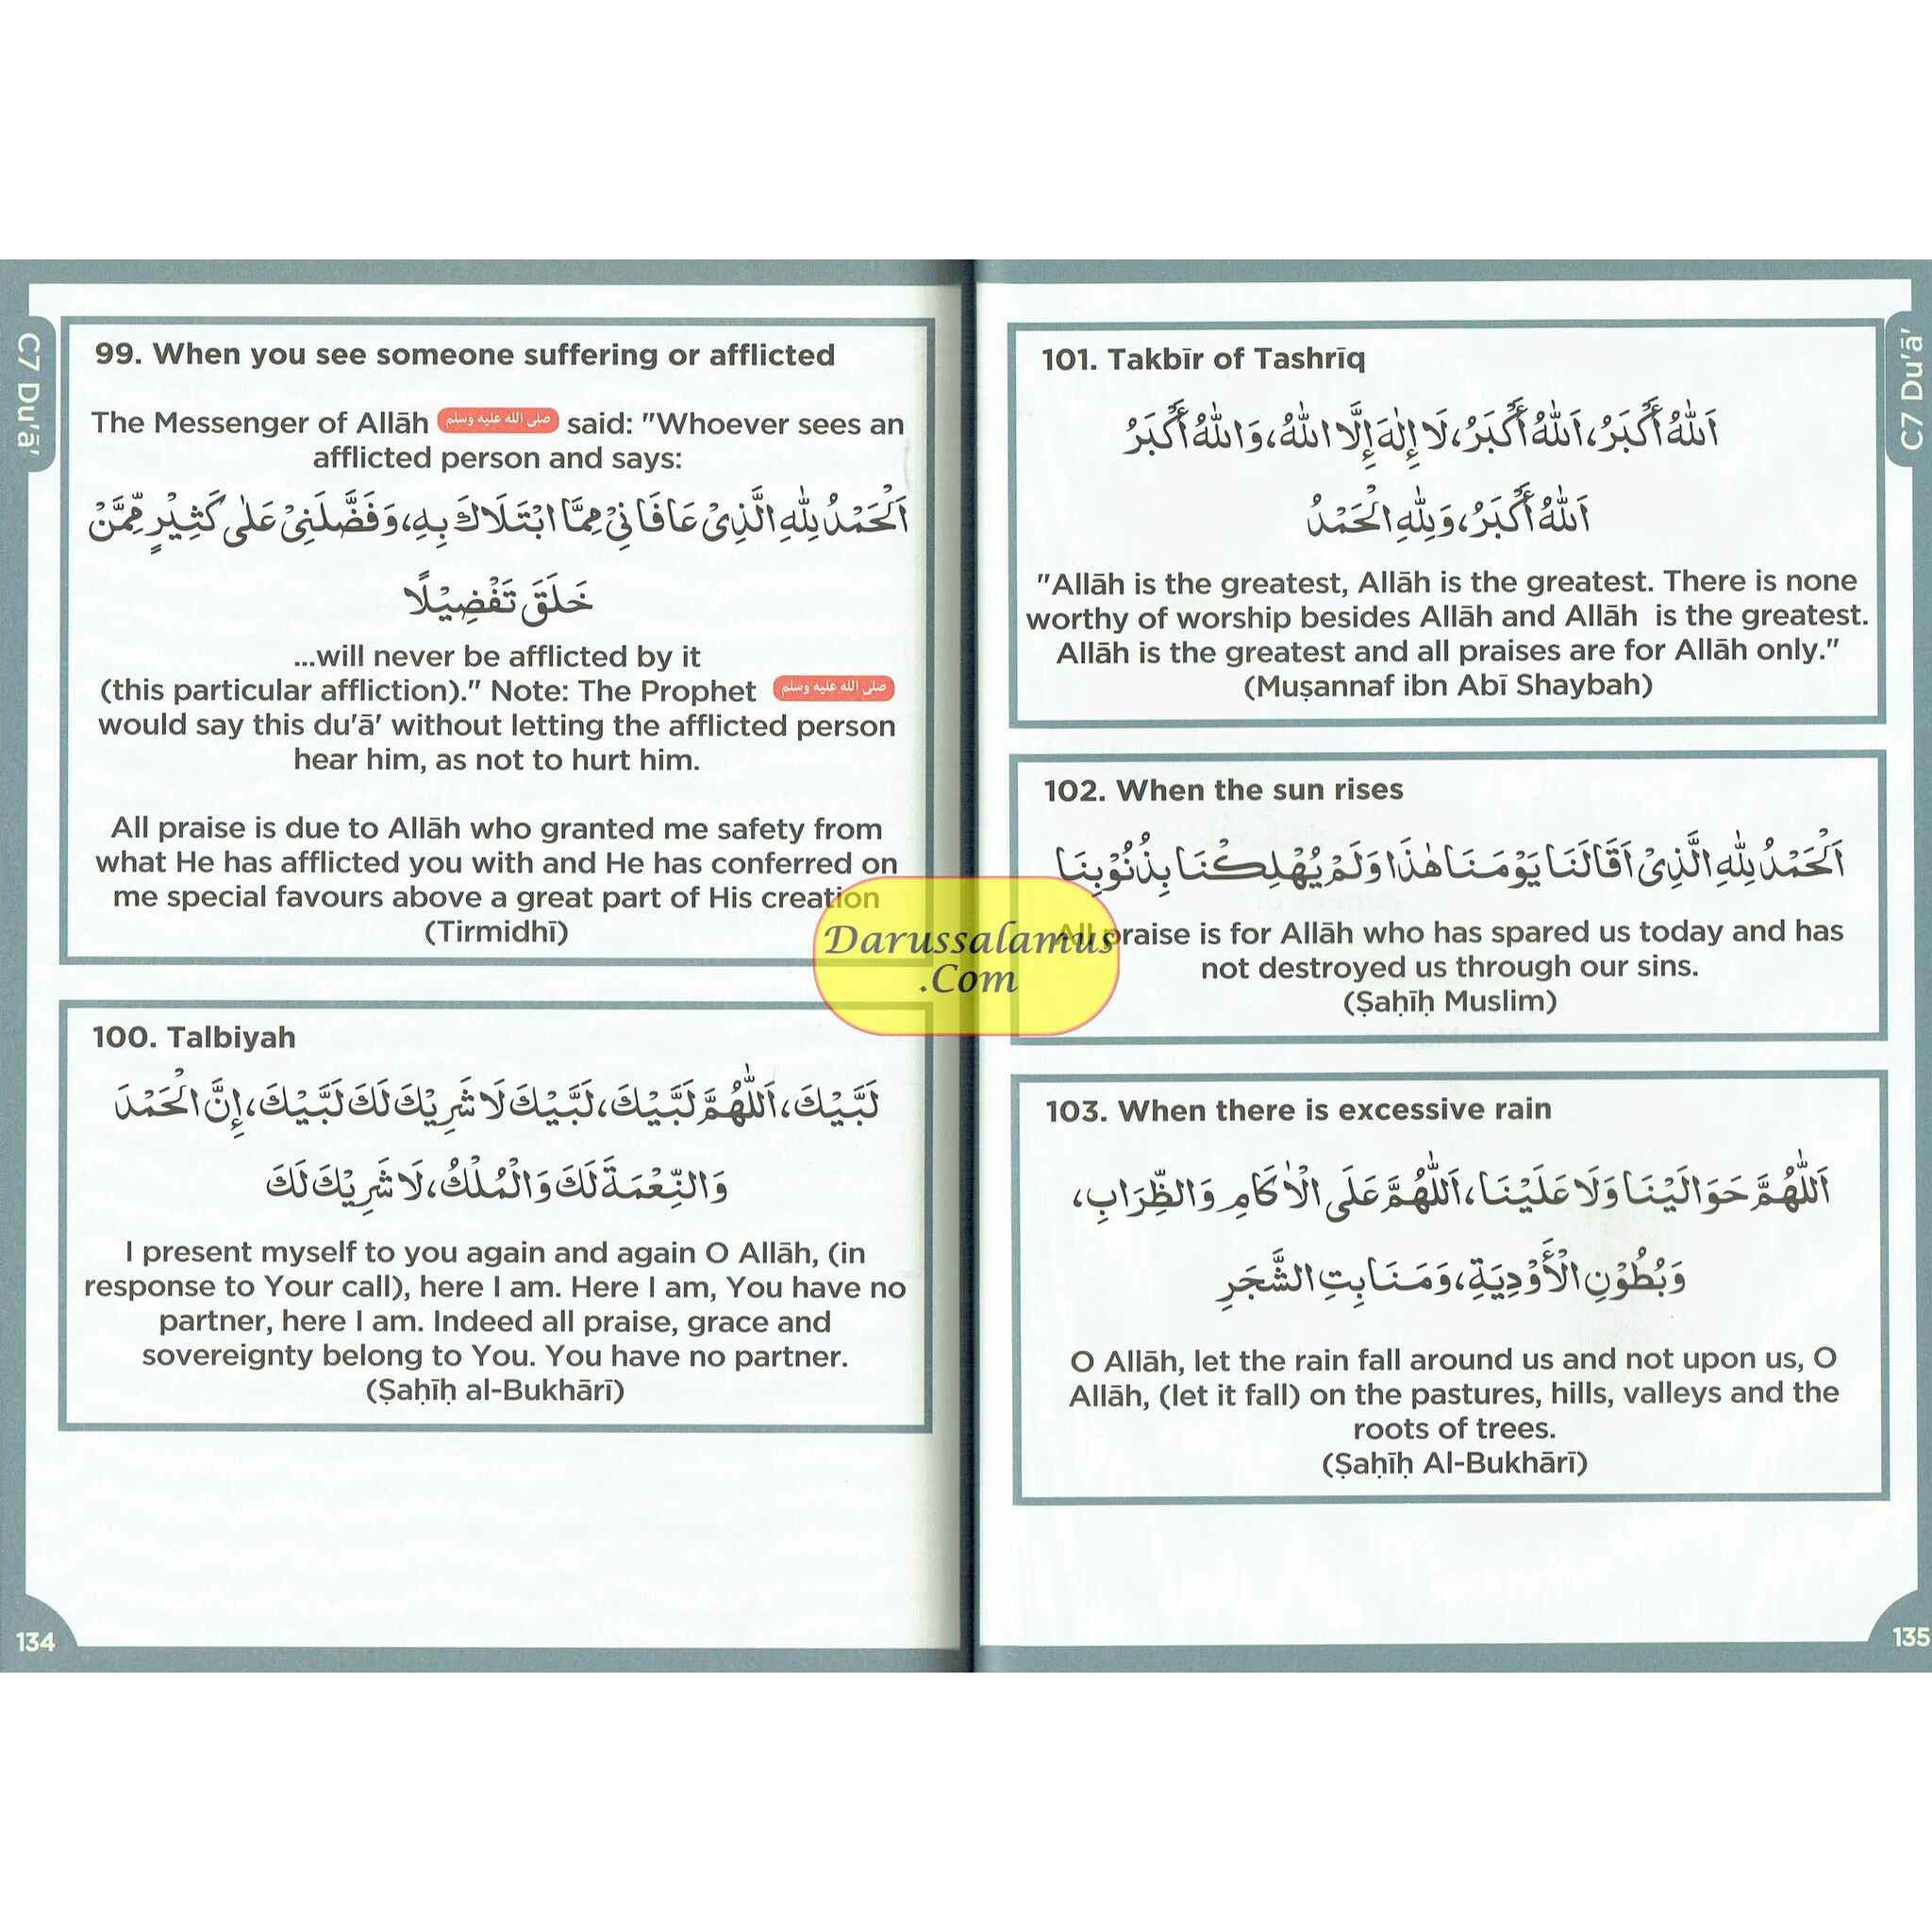 C7 Du'ā'
99. When you see someone suffering or afflicted
The Messenger of Allāh صلى الله عليه وسلم said: "Whoever sees an
afflicted person and says:
اَلْحَمْدُ لِلّٰهِ الَّذِيْ عَافَانِيْ مِمَّا ابْتَلَاكَ بِهِ، وَفَضَّلَنِيْ عَلٰى كَثِيْرٍ مِّمَّنْ
خَلَقَ تَفْضِيْلًا
...will never be afflicted by it
(this particular affliction)." Note: The Prophet صلى الله عليه وسلم
would say this du'ā' without letting the afflicted person
hear him, as not to hurt him.
All praise is due to Allāh who granted me safety from
what He has afflicted you with and He has conferred on
me special favours above a great part of His creation
(Tirmidhī)
100. Talbiyah
لَبَّيْكَ، اَللّٰهُمَّ لَبَّيْكَ، لَبَّيْكَ لَا شَرِيْكَ لَكَ لَبَّيْكَ، إِنَّ الْحَمْدَ
وَالنِّعْمَةَ لَكَ وَالْمُلْكُ، لَا شَرِيْكَ لَكَ
I present myself to you again and again O Allāh, (in
response to Your call), here I am. Here I am, You have no
partner, here I am. Indeed all praise, grace and
sovereignty belong to You. You have no partner.
(Ṣaḥīḥ al-Bukhārī)
134
C7 Du'ā'
101. Takbīr of Tashrīq
اَللّٰهُ أَكْبَرُ، اَللّٰهُ أَكْبَرُ، لَا إِلٰهَ إِلَّا اللّٰهُ، وَاللّٰهُ أَكْبَرُ
اَللّٰهُ أَكْبَرُ، وَلِلّٰهِ الْحَمْدُ
"Allāh is the greatest, Allāh is the greatest. There is none
worthy of worship besides Allāh and Allāh is the greatest.
Allāh is the greatest and all praises are for Allāh only."
(Muṣannaf ibn Abī Shaybah)
102. When the sun rises
اَلْحَمْدُ لِلّٰهِ الَّذِيْ اَقَالَنَا يَوْمَنَا هٰذَا وَلَمْ يُهْلِكْنَا بِذُنُوْبِنَا
All praise is for Allāh who has spared us today and has
not destroyed us through our sins.
(Ṣaḥīḥ Muslim)
103. When there is excessive rain
اَللّٰهُمَّ حَوَالَيْنَا وَلَا عَلَيْنَا، اَللّٰهُمَّ عَلَى الْاٰكَامِ وَالظِّرَابِ،
وَبُطُوْنِ الْأَوْدِيَةِ، وَمَنَابِتِ الشَّجَرِ
O Allāh, let the rain fall around us and not upon us, O
Allāh, (let it fall) on the pastures, hills, valleys and the
roots of trees.
(Ṣaḥīḥ Al-Bukhārī)
135
Darussalamus
.Com